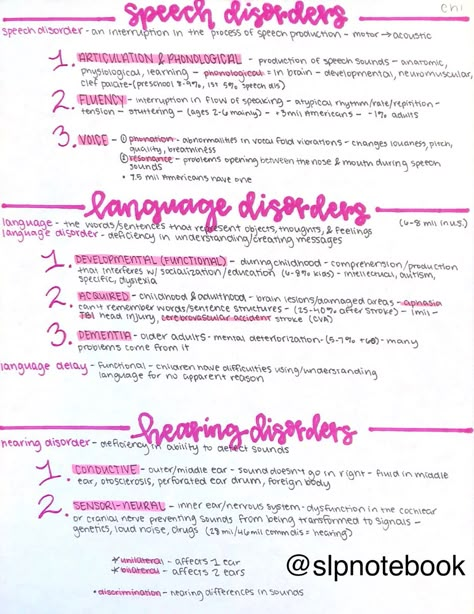 speech disorders
ch 1
speech disorder - an interruption in the process of speech production - motor → acoustic
1. ARTICULATION & PHONOLOGICAL - production of speech sounds - anatomic,
physiological, learning - phonological = in brain - developmental, neuromuscular,
cleft palate - (preschool 8-9%, 1st 5% speech dis)
2. FLUENCY - interruption in flow of speaking - atypical rhythm/rate/repitition -
tension - stuttering - (ages 2-6 mainly) - +3mil Americans - ~1% adults
3. VOICE - ① phonation - abnormalities in vocal fold vibrations - changes loudness, pitch,
quality, breathiness
② resonance - problems opening between the nose & mouth during speech
sounds
• 7.5 mil Americans have one
language disorders
language - the words/sentences that represent objects, thoughts, & feelings
(6-8 mil in U.S.)
language disorder - deficiency in understanding/creating messages
1. DEVELOPMENTAL (FUNCTIONAL) - during childhood - comprehension/production
that interferes w/ socialization/education (6-8% kids) - intellectual, autism,
specific, dyslexia
2. ACQUIRED - childhood & adulthood - brain lesions/damaged areas - aphasia
can't remember words/sentence structures - (25-40% after stroke) - 1mil -
TBI head injury, cerebrovascular accident stroke (CVA)
3. DEMENTIA - older adults - mental deterioration - (5-7% +60) - many
problems come from it
language delay - functional - children have difficulties using/understanding
language for no apparent reason
hearing disorders
hearing disorder - deficiency in ability to detect sounds
1. CONDUCTIVE - outer/middle ear - sound doesn't go in right - fluid in middle
ear, otosclerosis, perforated ear drum, foreign body
2. SENSORI-NEURAL - inner ear/nervous system - dysfunction in the cochlear
or cranial nerve preventing sounds from being transformed to signals -
genetics, loud noise, drugs (28 mil/46mil comm dis = hearing)
* unilateral - affects 1 ear
* bilateral - affects 2 ears
• discrimination - hearing differences in sounds
@slpnotebook